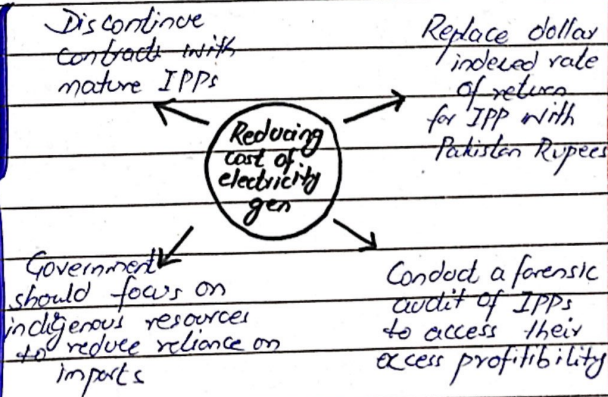 Discontinue
contracts with
mature IPPs
Replace dollar
indexed rate
of return
for IPP with
Pakistan Rupees
Reducing
cost of
electricity
gen
Government
should focus on
indigenous resources
to reduce reliance on
imports
Conduct a forensic
audit of IPPs
to access their
excess profitibility